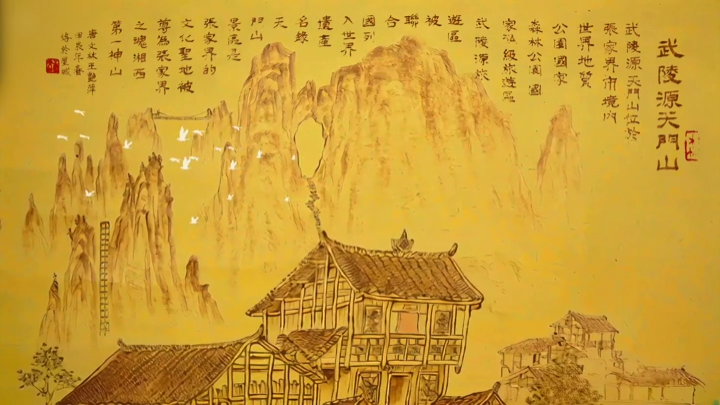 武陵源天門山
武陵源天門山位於
張家界市境內
世界地質
公園國家
森林公園國
家5A級旅遊區
武陵源旅
遊區
被
聯
合
國列
入世界
遺產
名錄
天
門山
景區是
張家界的
文化聖地被
尊為張家界
之魂湘西
第一神山
唐文林王艷萍
甲辰年春